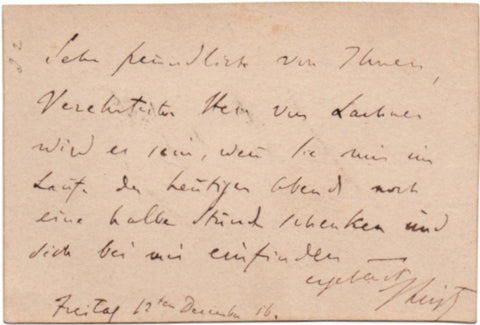 Sehr freundlich von Ihnen,
Verehrtester Herr von Lachner
wird es sein, wenn Sie mir im
Laufe des heutigen Abends noch
eine halbe Stunde schenken und
sich bei mir einfinden
ergebenst
Freitag 12ten December 16.